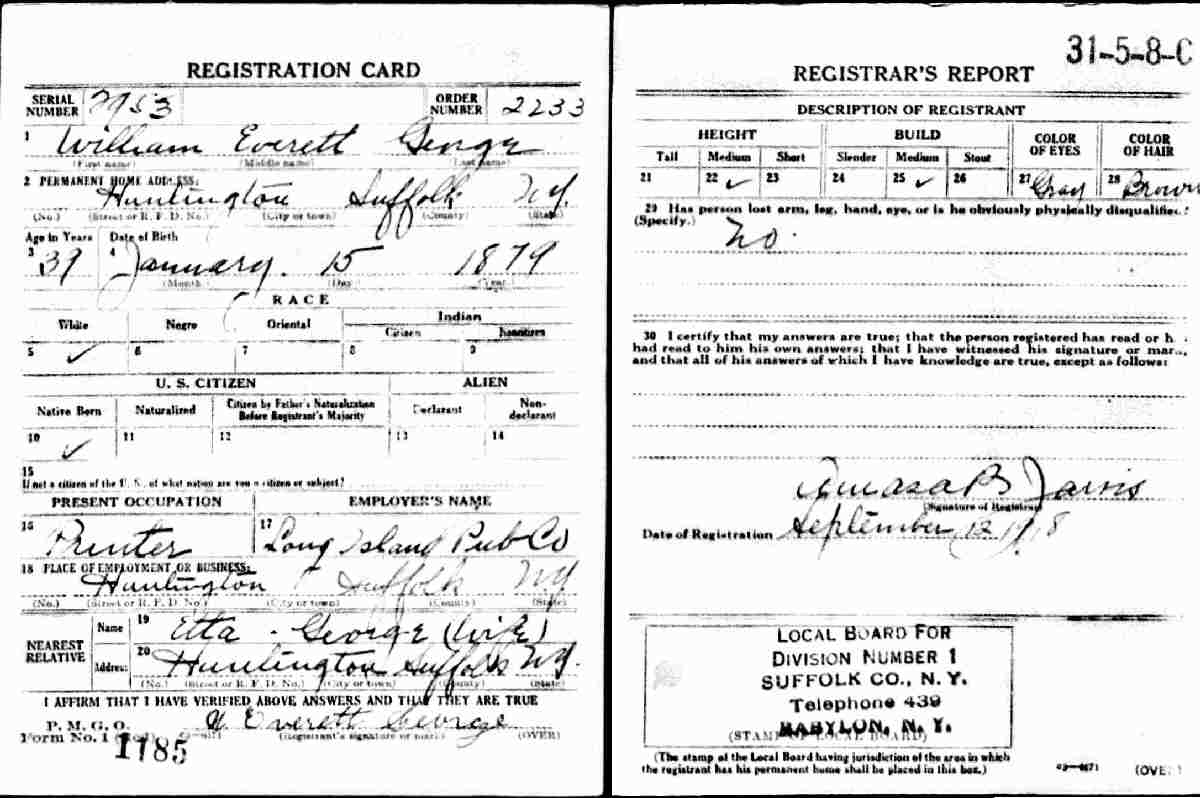 REGISTRATION CARD
SERIAL NUMBER 2953 ORDER NUMBER 2233
1 William Everett George
(First name) (Middle name) (Last name)
2 PERMANENT HOME ADDRESS:
Huntington Suffolk N.Y.
(No.) (Street or R. F. D. No.) (City or town) (County) (State)
Age in Years Date of Birth
3 39 4 January. 15 1879
(Month) (Day) (Year)
RACE
White Negro Oriental Indian
Citizen Noncitizen
5 ✓ 6 7 8 9
U. S. CITIZEN ALIEN
Native Born Naturalized Citizen by Father's Naturalization Before Registrant's Majority Declarant Non-declarant
10 ✓ 11 12 13 14
15
If not a citizen of the U. S., of what nation are you a citizen or subject?
PRESENT OCCUPATION EMPLOYER'S NAME
16 Printer 17 Long Island Pub Co
18 PLACE OF EMPLOYMENT OR BUSINESS:
Huntington Suffolk NY
(No.) (Street or R. F. D. No.) (City or town) (County) (State)
NEAREST RELATIVE Name 19 Etta - George (Wife)
Address: 20 Huntington Suffolk N.Y.
(No.) (Street or R. F. D. No.) (City or town) (County) (State)
I AFFIRM THAT I HAVE VERIFIED ABOVE ANSWERS AND THAT THEY ARE TRUE
P. M. G. O.
Form No. 1 (Red) W Everett George
1785 (Registrant's signature or mark) (OVER)
31-5-8-C
REGISTRAR'S REPORT
DESCRIPTION OF REGISTRANT
HEIGHT BUILD COLOR OF EYES COLOR OF HAIR
Tall Medium Short Slender Medium Stout
21 22 ✓ 23 24 25 ✓ 26 27 Gray 28 Brown
29 Has person lost arm, leg, hand, eye, or is he obviously physically disqualified?
(Specify.) No.
30 I certify that my answers are true; that the person registered has read or h
had read to him his own answers; that I have witnessed his signature or mark,
and that all of his answers of which I have knowledge are true, except as follows:
Amasa B Jarvis
(Signature of Registrar)
Date of Registration September 12 1918
LOCAL BOARD FOR
DIVISION NUMBER 1
SUFFOLK CO., N. Y.
Telephone 439
BABYLON, N. Y.
(STAMP OF LOCAL BOARD)
(The stamp of the Local Board having jurisdiction of the area in which
the registrant has his permanent home shall be placed in this box.)
(OVER)